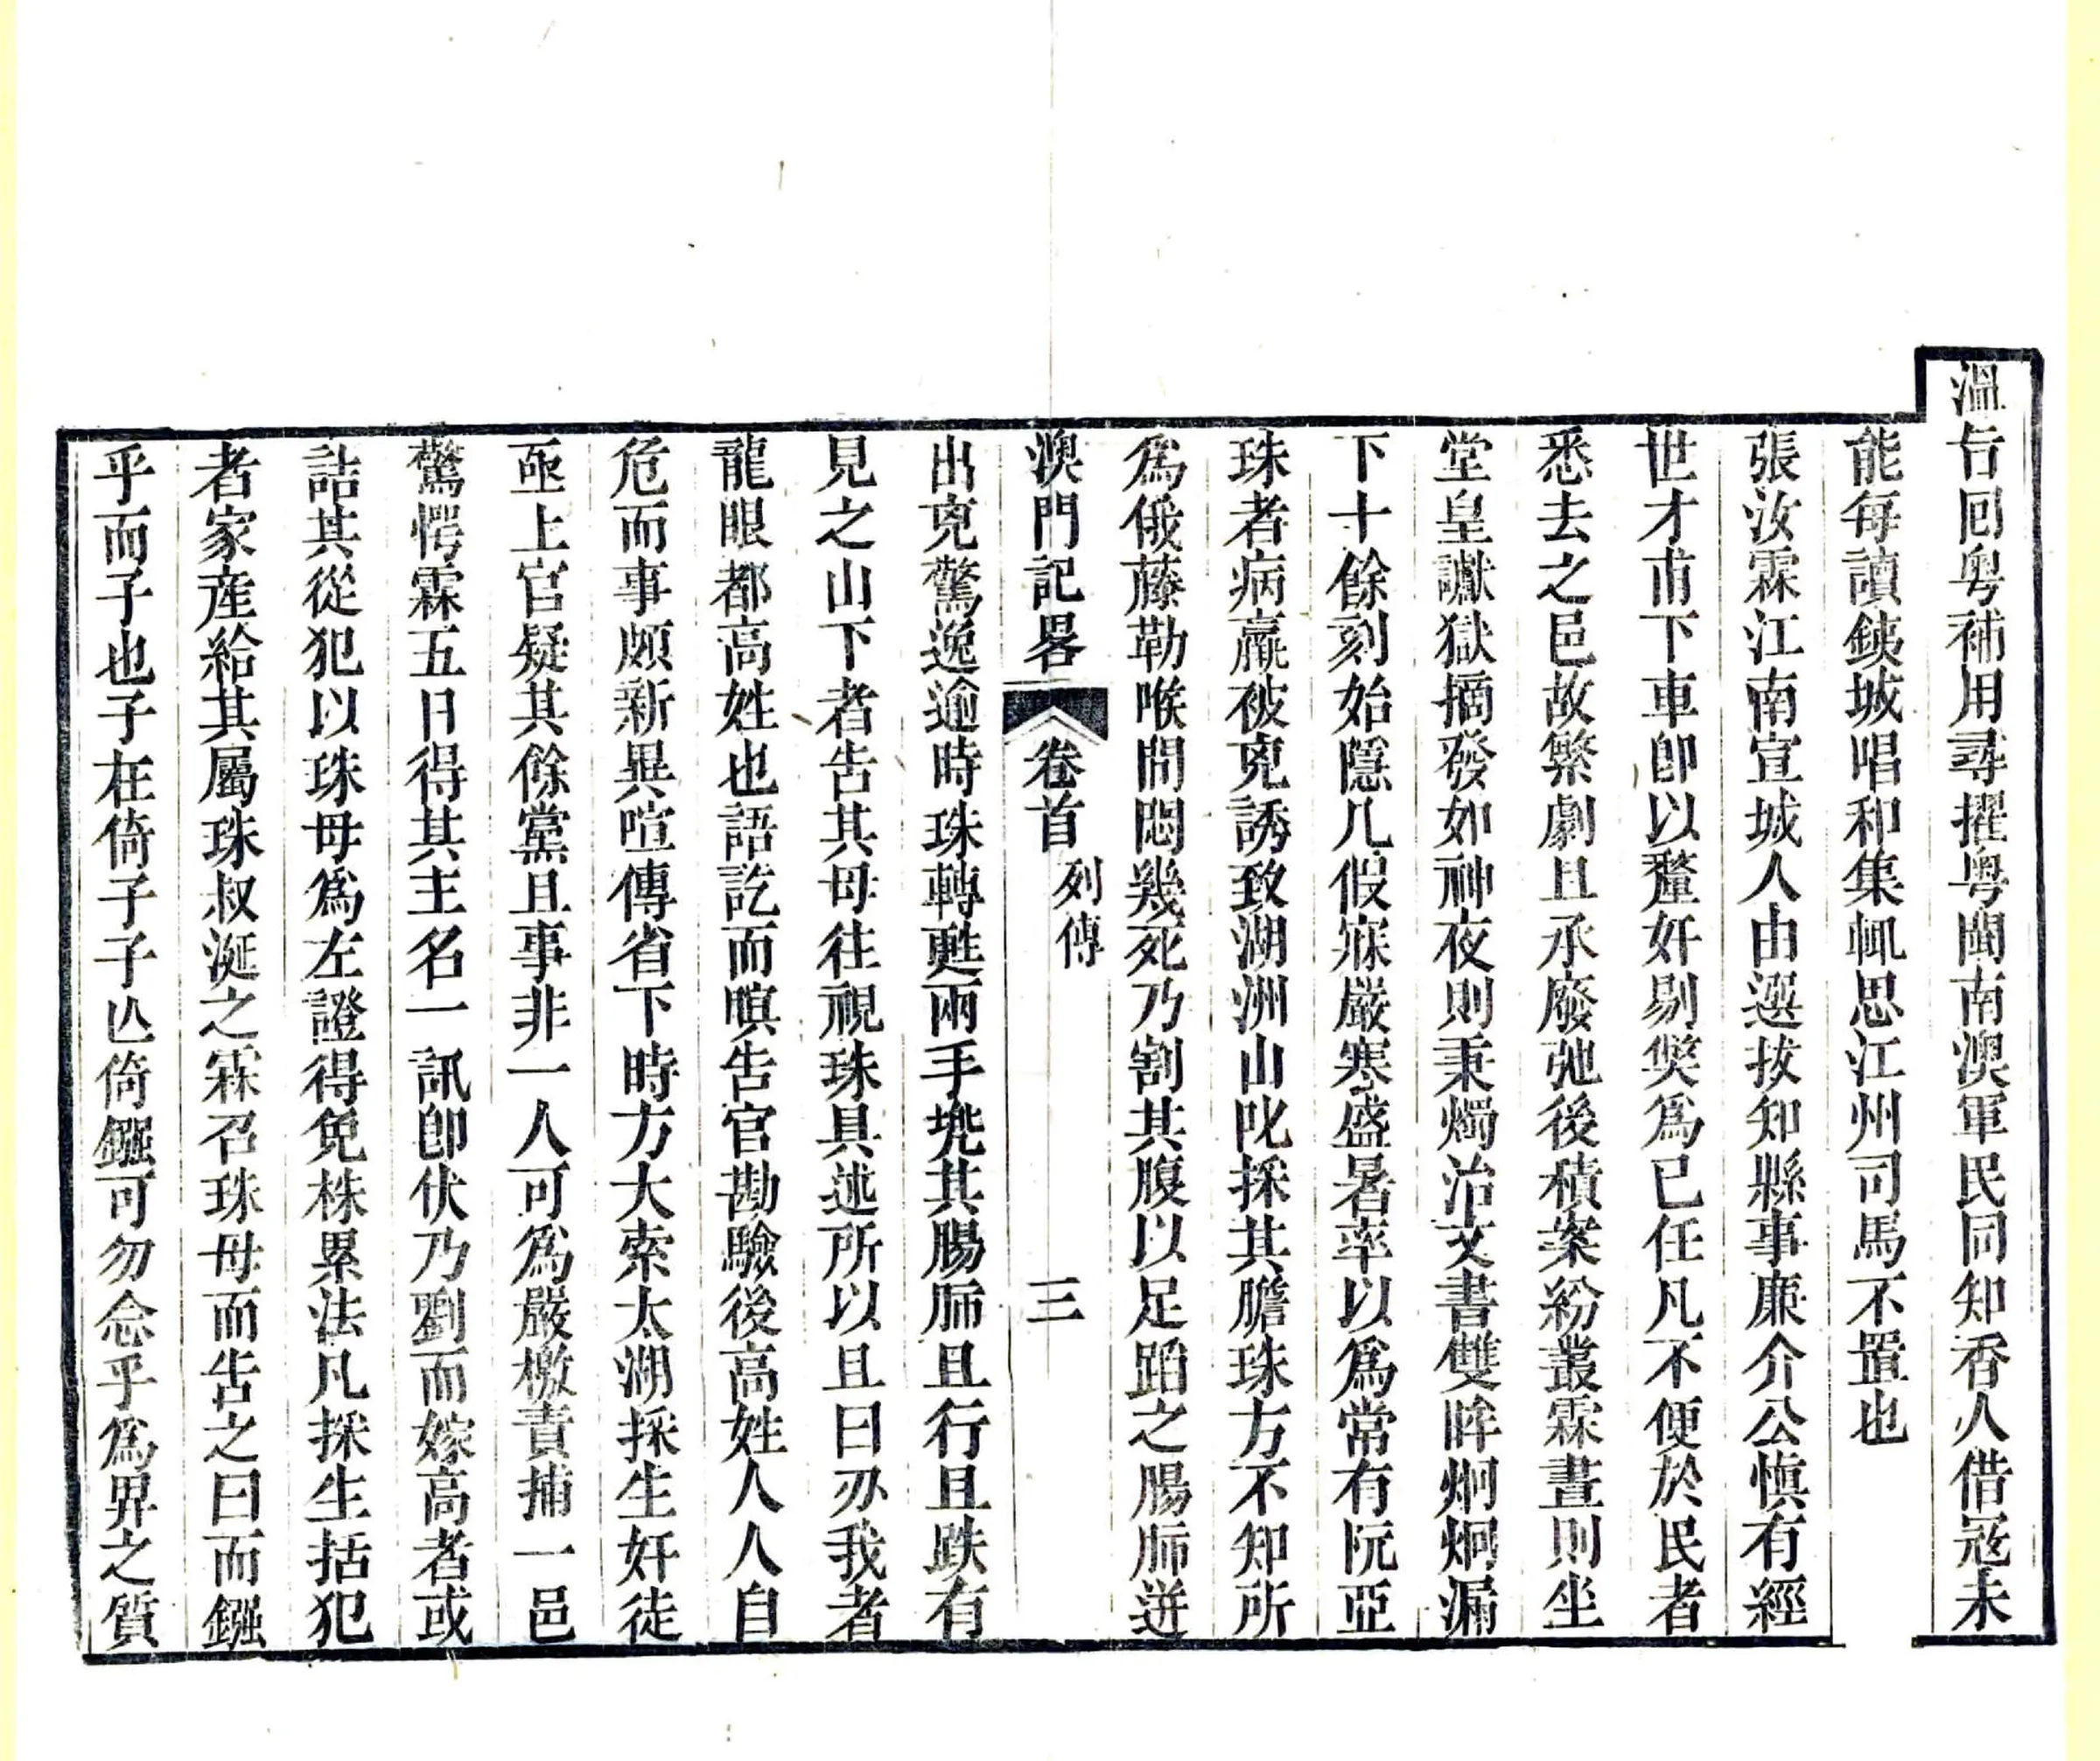 溫旨囘粤補用尋擢粤閩南澳軍民同知香人借寇未
能每讀鉄城唱和集輒思江州司馬不置也
張汝霖江南宣城人由選拔知縣事廉介公愼有經
世才甫下車卽以釐奸剔獘爲已任凡不便於民者
悉去之邑故繁劇且承廢弛後積案紛叢霖晝則坐
堂皇讞獄摘發如神夜則秉燭治文書雙眸炯炯漏
下十餘刻始隱几假寐嚴寒盛暑率以爲常有阮亞
珠者病羸被兇誘致湖洲山叱採其膽珠方不知所
爲俄藤勒喉間悶幾死乃割其腹以足蹈之腸胏迸
澳門記畧 卷首 列傳 三
出兇驚逸逾時珠轉甦兩手㧯其腸胏且行且跌有
見之山下者告其母往視珠具述所以且曰刅我者
龍眼都高姓也語訖而暝告官勘驗後高姓人人自
危而事頗新異喧傳省下時方大索太湖採生奸徒
亟上官疑其餘黨且事非一人可爲嚴檄責捕一邑
驚愕霖五日得其主名一訊卽伏乃劉而嫁高者或
詰其從犯以珠母爲左證得免株累法凡採生括犯
者家産給其屬珠叔涎之霖召珠母而告之曰而鏹
乎而子也子在倚子子亾倚鏹可勿念乎爲畀之質